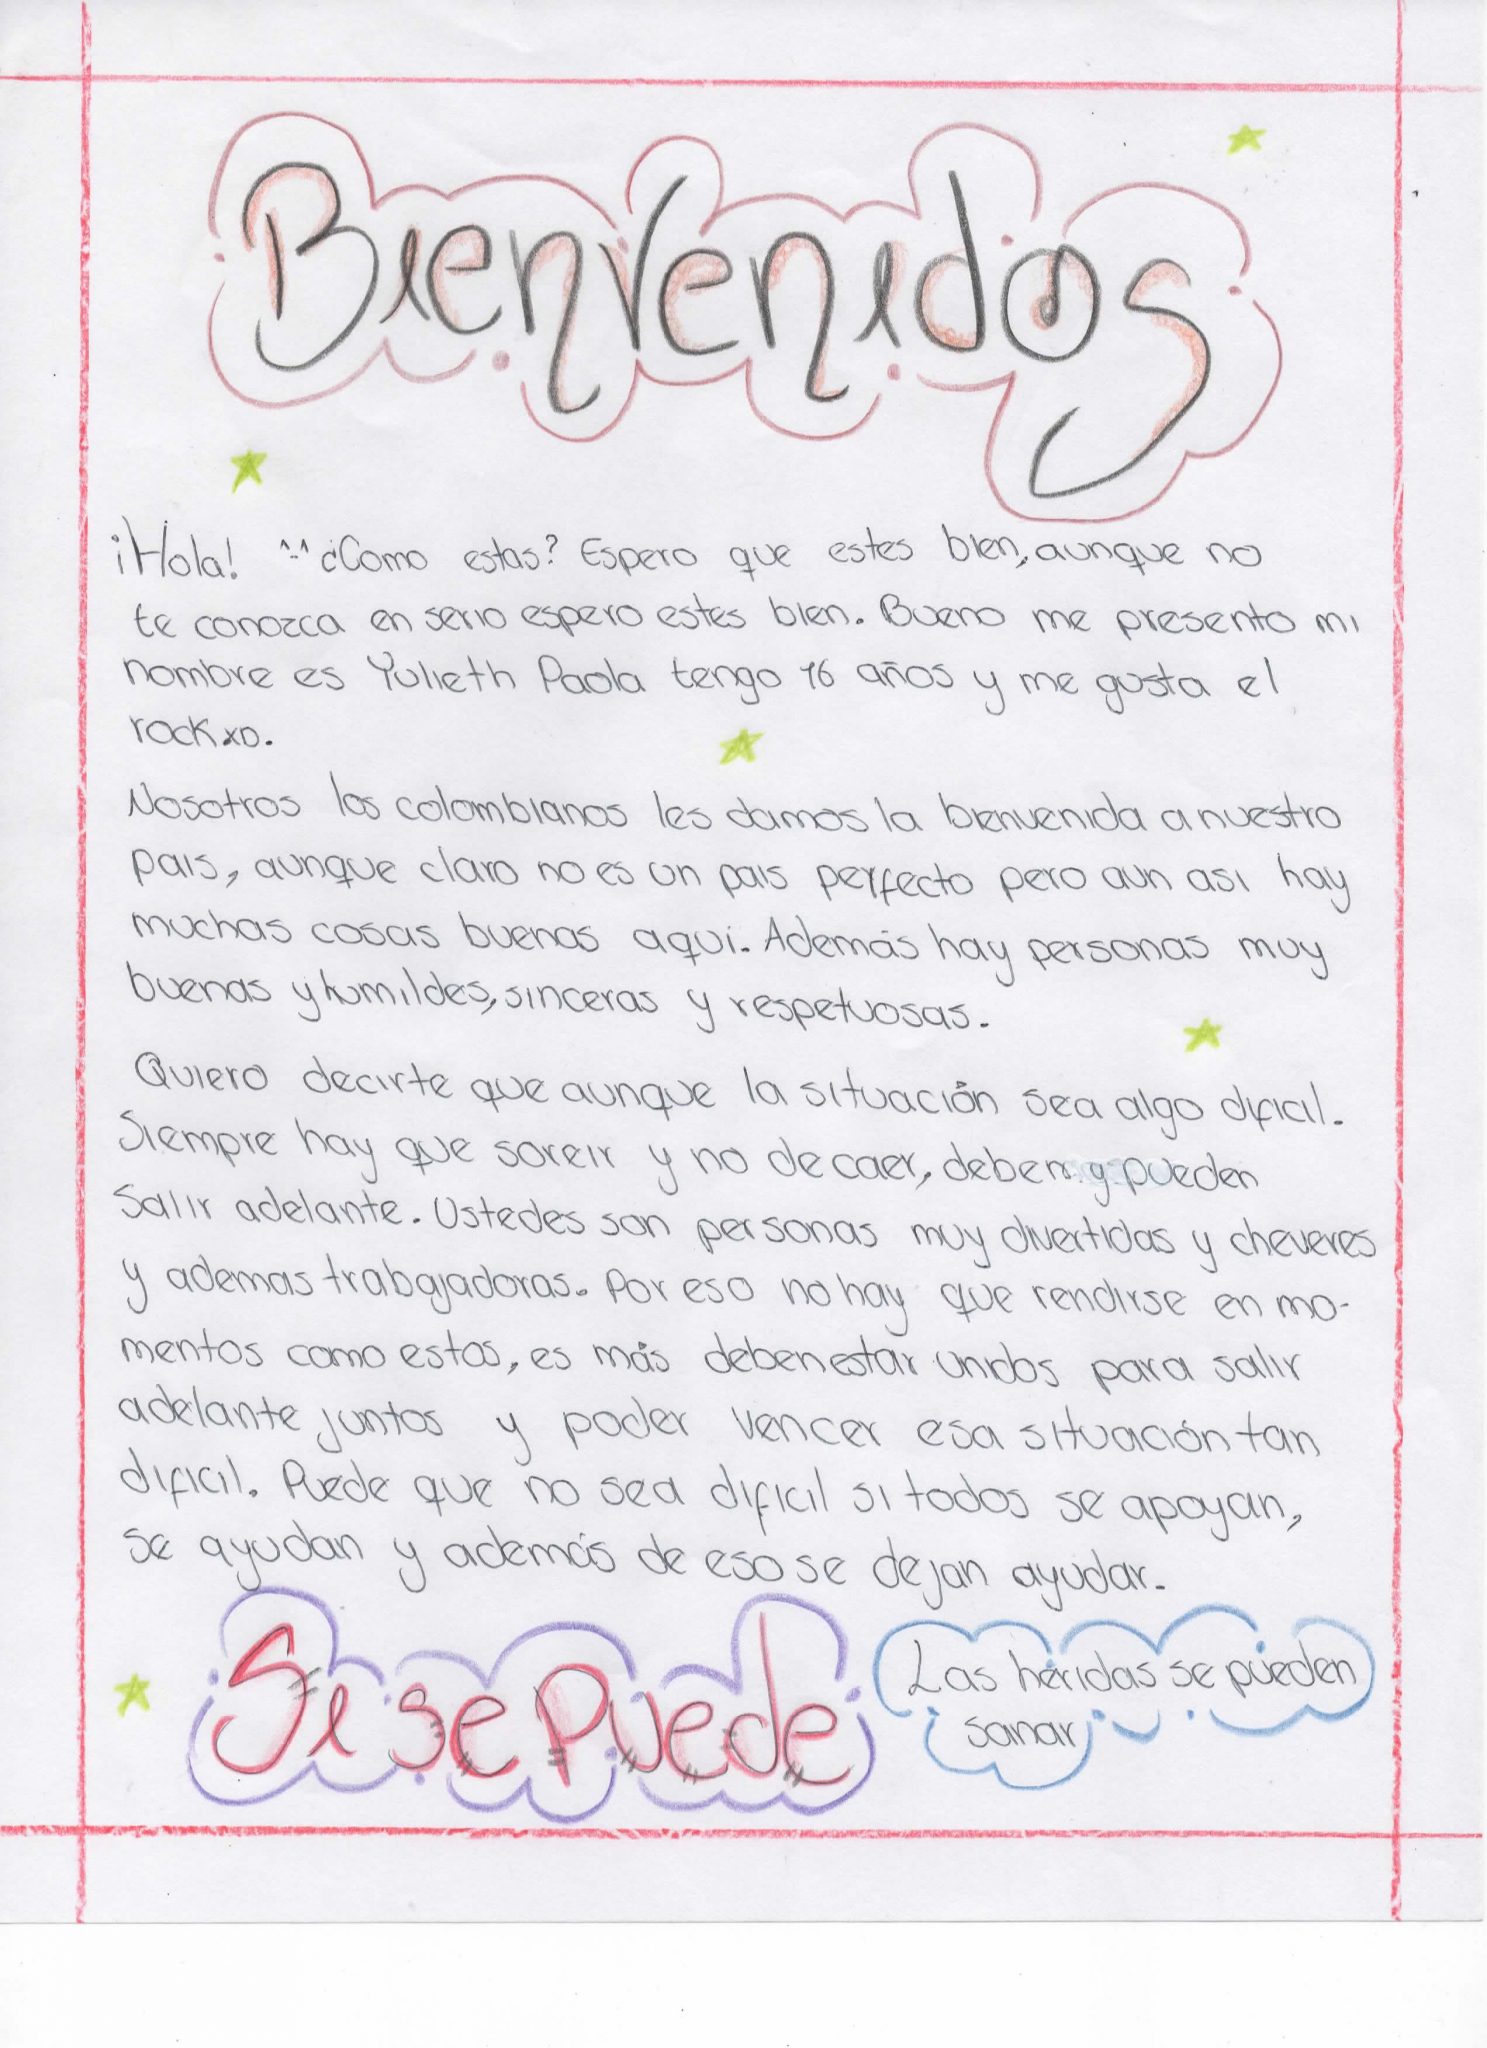 Bienvenidos
¡Hola! ^-^ ¿Como estas? Espero que estes bien, aunque no
te conozca en serio espero estes bien. Bueno me presento mi
nombre es Yulieth Paola tengo 16 años y me gusta el
rock xD.
Nosotros los colombianos les damos la bienvenida a nuestro
pais, aunque claro no es un pais perfecto pero aun asi hay
muchas cosas buenas aqui. Además hay personas muy
buenas y humildes, sinceras y respetuosas.
Quiero decirte que aunque la situación sea algo dificil.
Siempre hay que soreir y no decaer, deben y pueden
Salir adelante. Ustedes son personas muy divertidas y cheveres
y ademas trabajadoras. Por eso no hay que rendirse en mo-
mentos como estos, es más deben estar unidos para salir
adelante juntos y poder vencer esa situación tan
dificil. Puede que no sea dificil si todos se apoyan,
se ayudan y además de eso se dejan ayudar.
Si se Puede
Las heridas se pueden
sanar